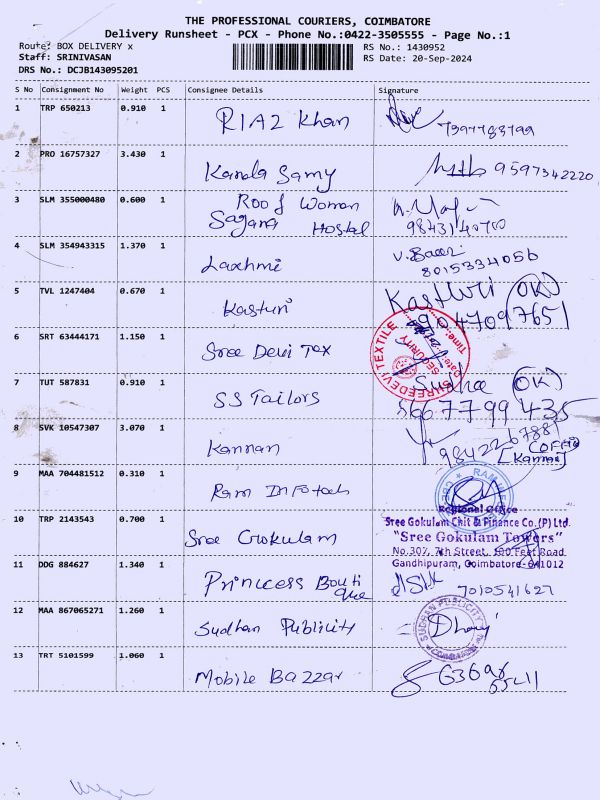 THE PROFESSIONAL COURIERS, COIMBATORE
Delivery Runsheet - PCX - Phone No.:0422-3505555 - Page No.:1
Route: BOX DELIVERY x
RS No.: 1430952
Staff: SRINIVASAN
RS Date: 20-Sep-2024
DRS No.: DCJB143095201
S No Consignment No Weight PCS Consignee Details Signature
1 TRP 650213 0.910 1 RIAZ Khan
2 PRO 16757327 3.430 1 Kanda Samy 9597342220
3 SLM 355000480 0.600 1 Roof Woman
Sagana Hostel 9843140700
4 SLM 354943315 1.370 1 Laxhmi
8015334056
5 TVL 1247404 0.670 1 Kasturi Kasthuri (OK)
9047097651
6 SRT 63444171 1.150 1 Sree Devi Tex
SHREEDEVI TEXTILE
SECURITY
Date: Time:
7 TUT 587831 0.910 1 SS Tailors Sudha (OK)
7799435
8 SVK 10547307 3.070 1 Kannan 9842267881
[Kannan]
9 MAA 704481512 0.310 1 Ram Infotech
10 TRP 2143543 0.700 1 Sree Gokulam
Regional Office
Sree Gokulam Chit & Finance Co.(P) Ltd.
"Sree Gokulam Towers"
No.307, 7th Street, 100 Feet Road
Gandhipuram, Coimbatore-641012
11 DDG 884627 1.340 1 Princess Bouti
que 7010541627
12 MAA 867065271 1.260 1 Sudhan Publicity
SUDHAN PUBLICITY
COIMBATORE
13 TRT 5101599 1.060 1 Mobile Bazzar